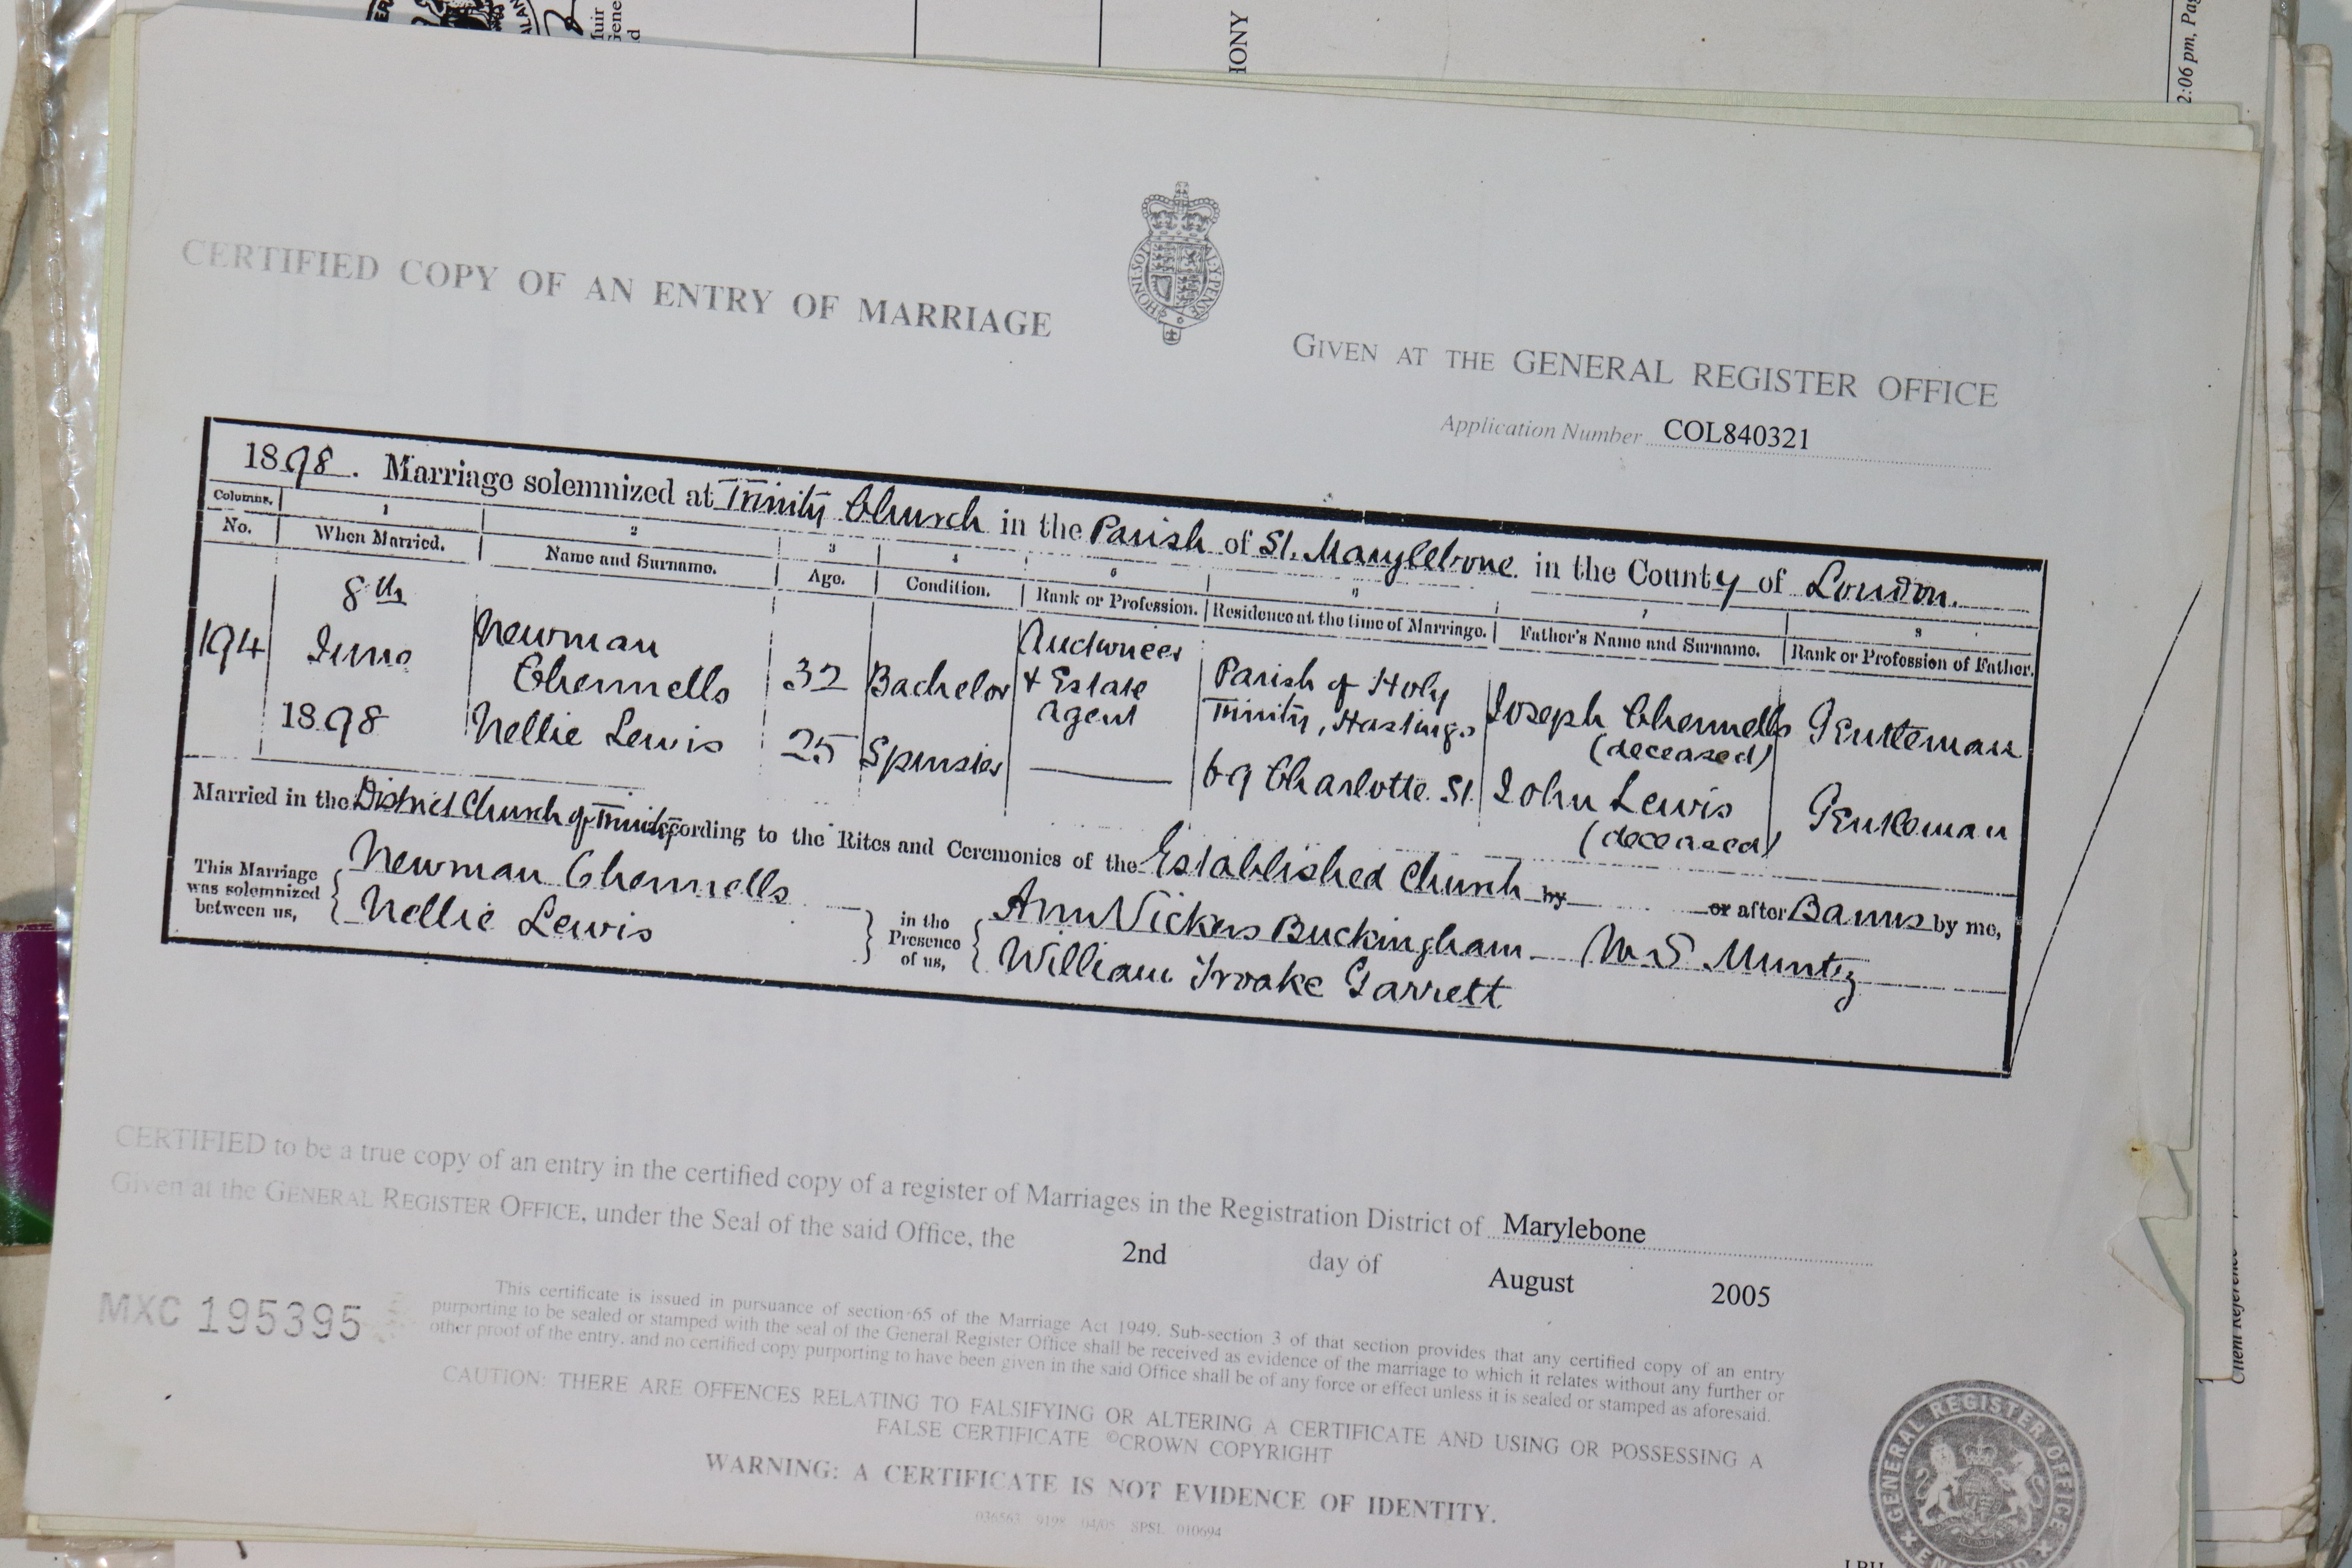 HONY
2:06 pm, Pag
CERTIFIED COPY OF AN ENTRY OF MARRIAGE
HONI·SOIT
GIVEN AT THE GENERAL REGISTER OFFICE
Application Number COL840321
1898. Marriage solemnized at Trinity Church in the Parish of St. Marylebone in the County of London.
Columns. 1 2 3 4 5 6 7 8
No. When Married. Name and Surname. Age. Condition. Rank or Profession. Residence at the time of Marriage. Father's Name and Surname. Rank or Profession of Father.
194 8th June 1898 Newman Chennells 32 Bachelor Auctioneer & Estate Agent Parish of Holy Trinity, Hastings Joseph Chennells (deceased) Gentleman
Nellie Lewis 25 Spinster 69 Charlotte St. John Lewis (deceased) Gentleman
Married in the District Church of Trinity according to the Rites and Ceremonies of the Established Church by or after Banns by me,
This Marriage was solemnized between us, Newman Chennells Nellie Lewis in the Presence of us, Ann Vickers Buckingham William Troake Garrett W S Muntz
CERTIFIED to be a true copy of an entry in the certified copy of a register of Marriages in the Registration District of Marylebone
Given at the GENERAL REGISTER OFFICE, under the Seal of the said Office, the 2nd day of August 2005
MXC 195395
This certificate is issued in pursuance of section 65 of the Marriage Act 1949. Sub-section 3 of that section provides that any certified copy of an entry
purporting to be sealed or stamped with the seal of the General Register Office shall be received as evidence of the marriage to which it relates without any further or
other proof of the entry, and no certified copy purporting to have been given in the said Office shall be of any force or effect unless it is sealed or stamped as aforesaid.
CAUTION: THERE ARE OFFENCES RELATING TO FALSIFYING OR ALTERING A CERTIFICATE AND USING OR POSSESSING A
FALSE CERTIFICATE ©CROWN COPYRIGHT
WARNING: A CERTIFICATE IS NOT EVIDENCE OF IDENTITY.
036563 9198 04/05 SPSL 010694
GENERAL REGISTER OFFICE ENGLAND